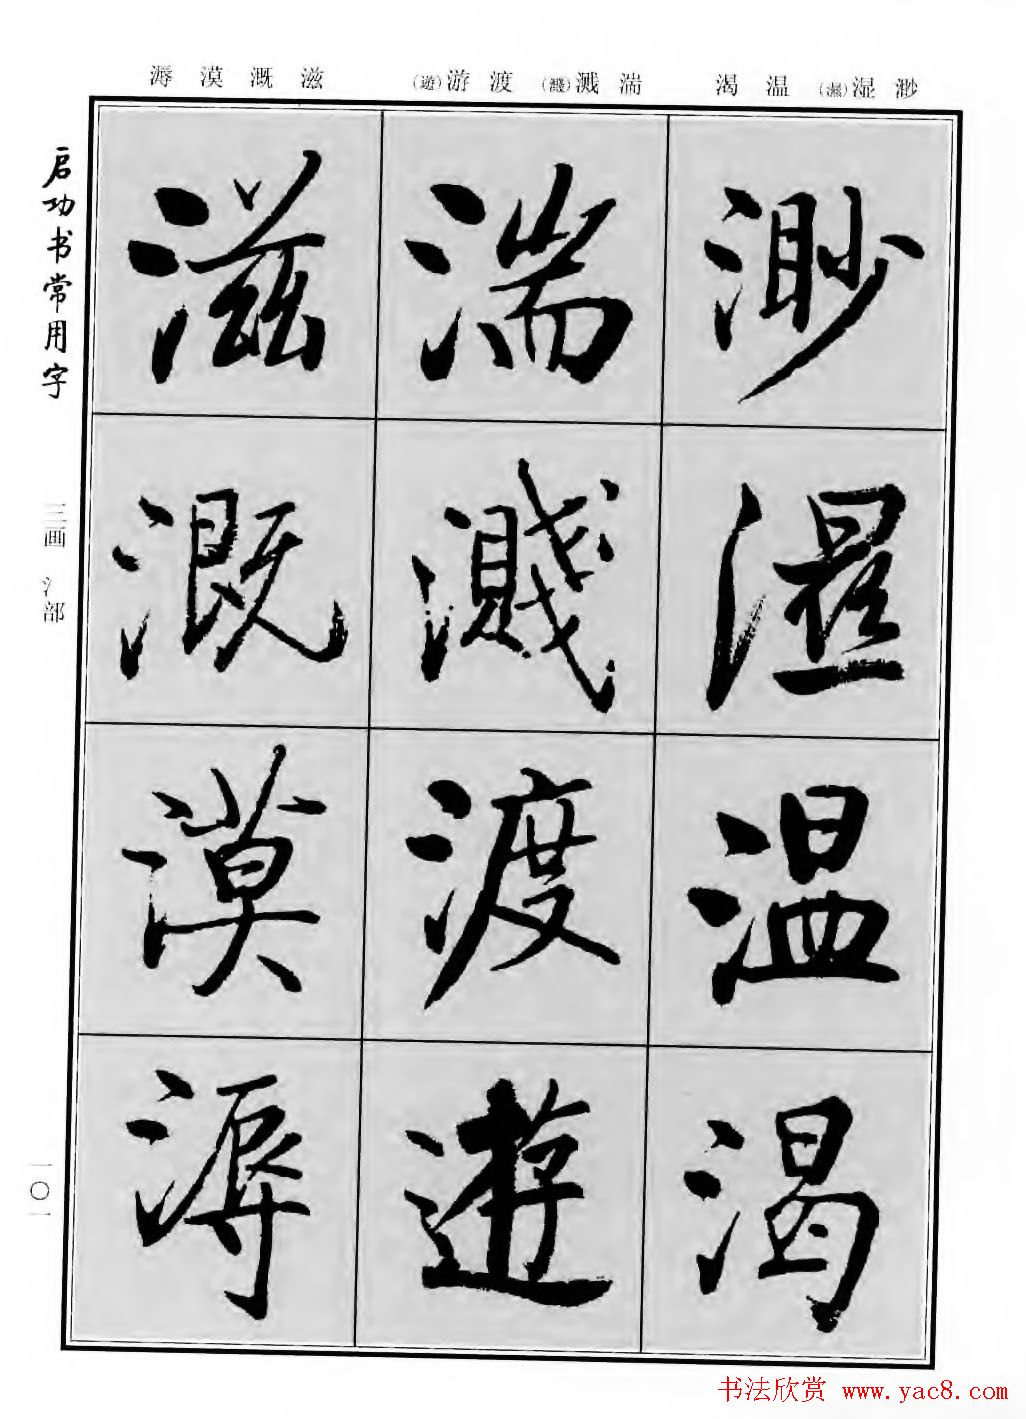 渺湿(濕)温渴
湍溅(濺)渡游(遊)
滋溉漠溽
渺
濕
温
渴
湍
濺
渡
遊
滋
溉
漠
溽
启功书常用字
三画 氵部
一〇一
书法欣赏 www.yac8.com